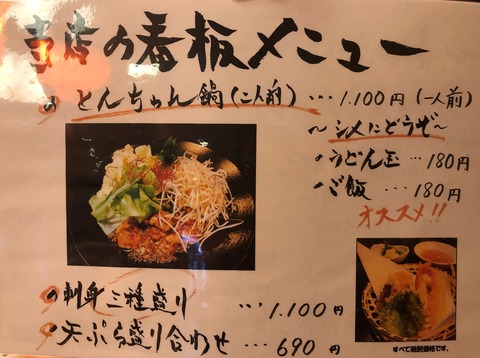 当店の看板メニュー
とんちゃん鍋(二人前) … 1,100円(一人前)
～シメにどうぞ～
うどん玉 … 180円
ご飯 … 180円
オススメ!!
刺身三種盛り … 1,100円
天ぷら盛り合わせ … 690円
すべて税別価格です。